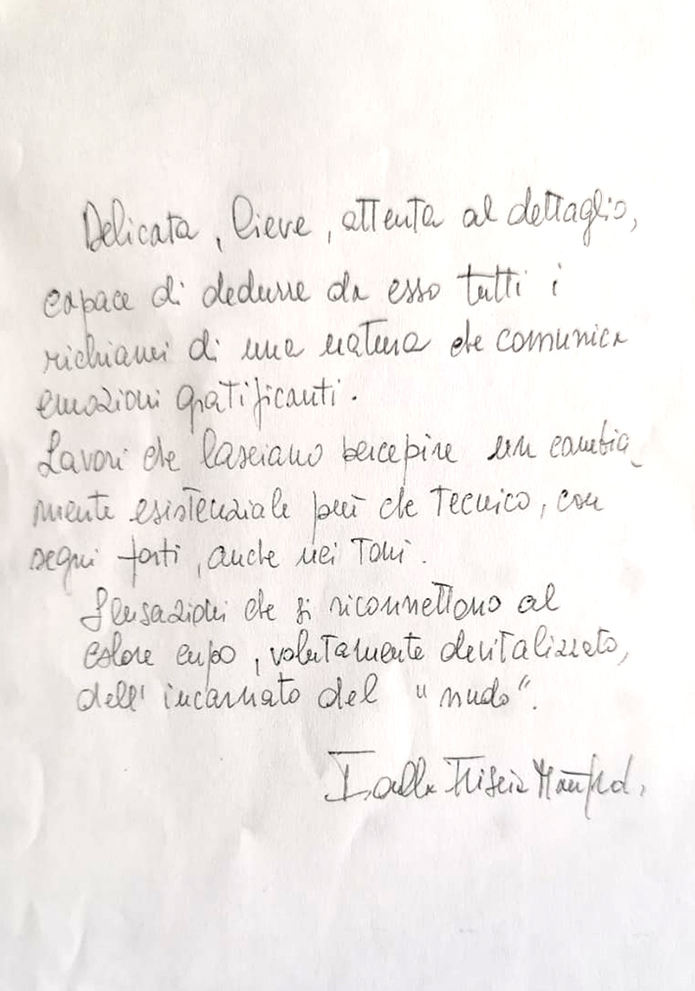 Delicata, lieve, attenta al dettaglio,
capace di dedurre da esso tutti i
richiami di una natura che comunica
emozioni gratificanti.
Lavori che lasciano percepire un cambia_
mento esistenziale più che tecnico, con
segni forti, anche nei toni.
Sensazioni che si riconnettono al
colore cupo, volutamente devitalizzato,
dell'incarnato del "nudo".